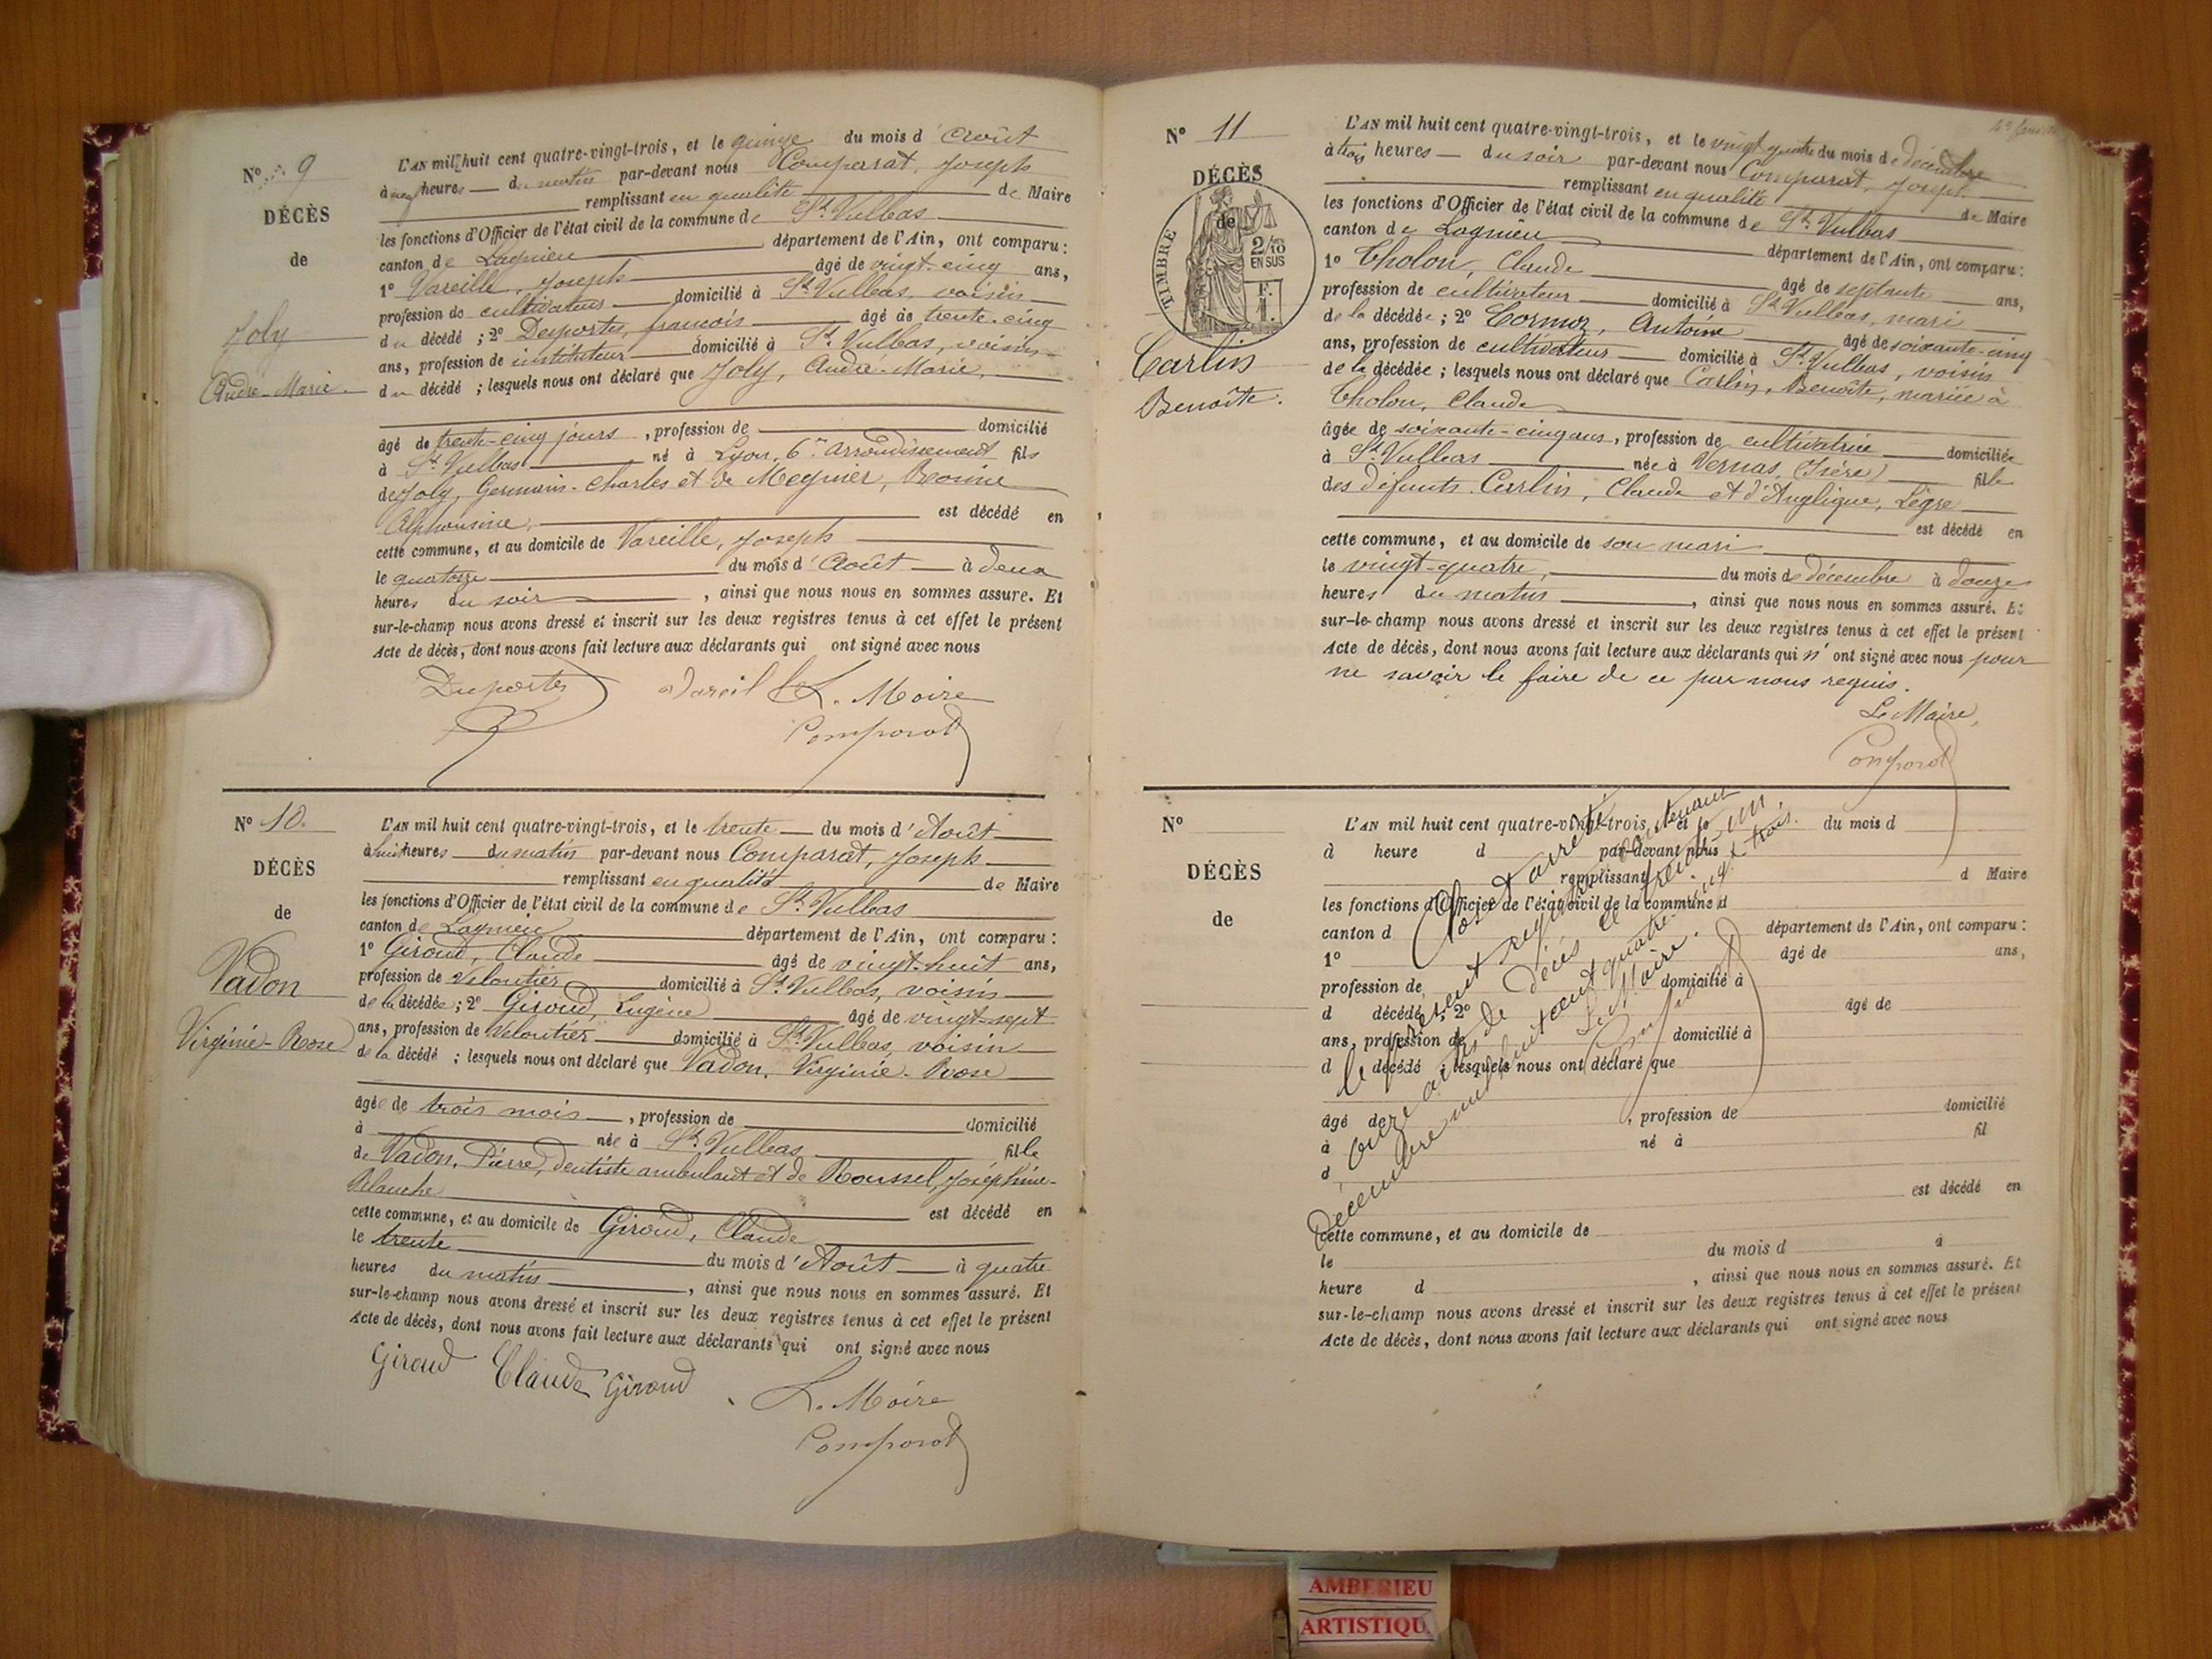 N° 9
DÉCÈS
de
Joly
André-Marie
L'AN mil huit cent quatre-vingt-trois, et le quinze du mois d'Août
à neuf heures du matin par-devant nous Comparat, Joseph
remplissant en qualité de Maire
les fonctions d'Officier de l'état civil de la commune de St Vulbas
canton de Lagnieu département de l'Ain, ont comparu :
1° Vareille, Joseph âgé de vingt-cinq ans,
profession de cultivateur domicilié à St Vulbas, voisin
du décédé ; 2° Desportes, françois âgé de trente-cinq
ans, profession de instituteur domicilié à St Vulbas, voisin
du décédé ; lesquels nous ont déclaré que Joly, André-Marie,
âgé de trente-cinq jours, profession de domicilié
à St Vulbas né à Lyon, 6e arrondissement fils
de Joly, Germain-Charles et de Meynier, Rosine
Alphonsine, est décédé en
cette commune, et au domicile de Vareille, Joseph
le quatorze du mois d'Août à deux
heures du soir, ainsi que nous nous en sommes assuré. Et
sur-le-champ nous avons dressé et inscrit sur les deux registres tenus à cet effet le présent
Acte de décès, dont nous avons fait lecture aux déclarants qui ont signé avec nous
Duportes Vareil Le Maire
Comparat
N° 10.
DÉCÈS
de
Vadon
Virginie-Rose
L'AN mil huit cent quatre-vingt-trois, et le trente du mois d'Août
à huit heures du matin par-devant nous Comparat, Joseph
remplissant en qualité de Maire
les fonctions d'Officier de l'état civil de la commune de St Vulbas
canton de Lagnieu département de l'Ain, ont comparu :
1° Giroud, Claude âgé de vingt-huit ans,
profession de Veloutier domicilié à St Vulbas, voisin
de la décédée ; 2° Giroud, Eugène âgé de vingt-sept
ans, profession de Veloutier domicilié à St Vulbas, voisin
de la décédé ; lesquels nous ont déclaré que Vadon, Virginie-Rose
âgée de trois mois, profession de domicilié
à née à St Vulbas fille
de Vadon, Pierre, dentiste ambulant et de Roussel, Joséphine-
Blanche est décédé en
cette commune, et au domicile de Giroud, Claude
le trente du mois d'Août à quatre
heures du matin, ainsi que nous nous en sommes assuré. Et
sur-le-champ nous avons dressé et inscrit sur les deux registres tenus à cet effet le présent
Acte de décès, dont nous avons fait lecture aux déclarants qui ont signé avec nous
Giroud Claude Giroud Le Maire
Comparat
N° 11
DÉCÈS
de
TIMBRE
2/10
EN SUS
F.
1.
Carlin
Benoîte.
L'AN mil huit cent quatre-vingt-trois, et le vingt-quatre du mois de décembre
à trois heures du soir par-devant nous Comparat, Joseph
remplissant en qualité de Maire
les fonctions d'Officier de l'état civil de la commune de St Vulbas
canton de Lagnieu département de l'Ain, ont comparu :
1° Cholon, Claude âgé de septante ans,
profession de cultivateur domicilié à St Vulbas, mari
de la décédée ; 2° Cormoz, Antoine âgé de soixante-cinq
ans, profession de cultivateur domicilié à St Vulbas, voisin
de la décédée ; lesquels nous ont déclaré que Carlin, Benoîte, mariée à
Cholon, Claude
âgée de soixante-cinq ans, profession de cultivatrice domiciliée
à St Vulbas née à Vernas (Isère) fille
des défunts Carlin, Claude et d'Anglique, Lègre
est décédé en
cette commune, et au domicile de son mari
le vingt-quatre, du mois de décembre à douze
heures du matin, ainsi que nous nous en sommes assuré. Et
sur-le-champ nous avons dressé et inscrit sur les deux registres tenus à cet effet le présent
Acte de décès, dont nous avons fait lecture aux déclarants qui n'ont signé avec nous pour
ne savoir le faire de ce par nous requis.
Le Maire,
Comparat
N°
DÉCÈS
de
L'AN mil huit cent quatre-vingt-trois, et le du mois d
à heure d par-devant nous
remplissant d Maire
les fonctions d'Officier de l'état civil de la commune d
canton d département de l'Ain, ont comparu :
1° âgé de ans,
profession de domicilié à
d décédé ; 2° âgé de
ans, profession de domicilié à
d décédé ; lesquels nous ont déclaré que
âgé de , profession de domicilié
à né à fil
d
est décédé en
cette commune, et au domicile de
le du mois d à
heure d , ainsi que nous nous en sommes assuré. Et
sur-le-champ nous avons dressé et inscrit sur les deux registres tenus à cet effet le présent
Acte de décès, dont nous avons fait lecture aux déclarants qui ont signé avec nous
Clos et arrêté
le présent registre contenant
onze actes de décès le trente-un
décembre mil huit cent quatre-vingt-trois.
Le Maire.
Comparat
AMBERIEU
ARTISTIQU